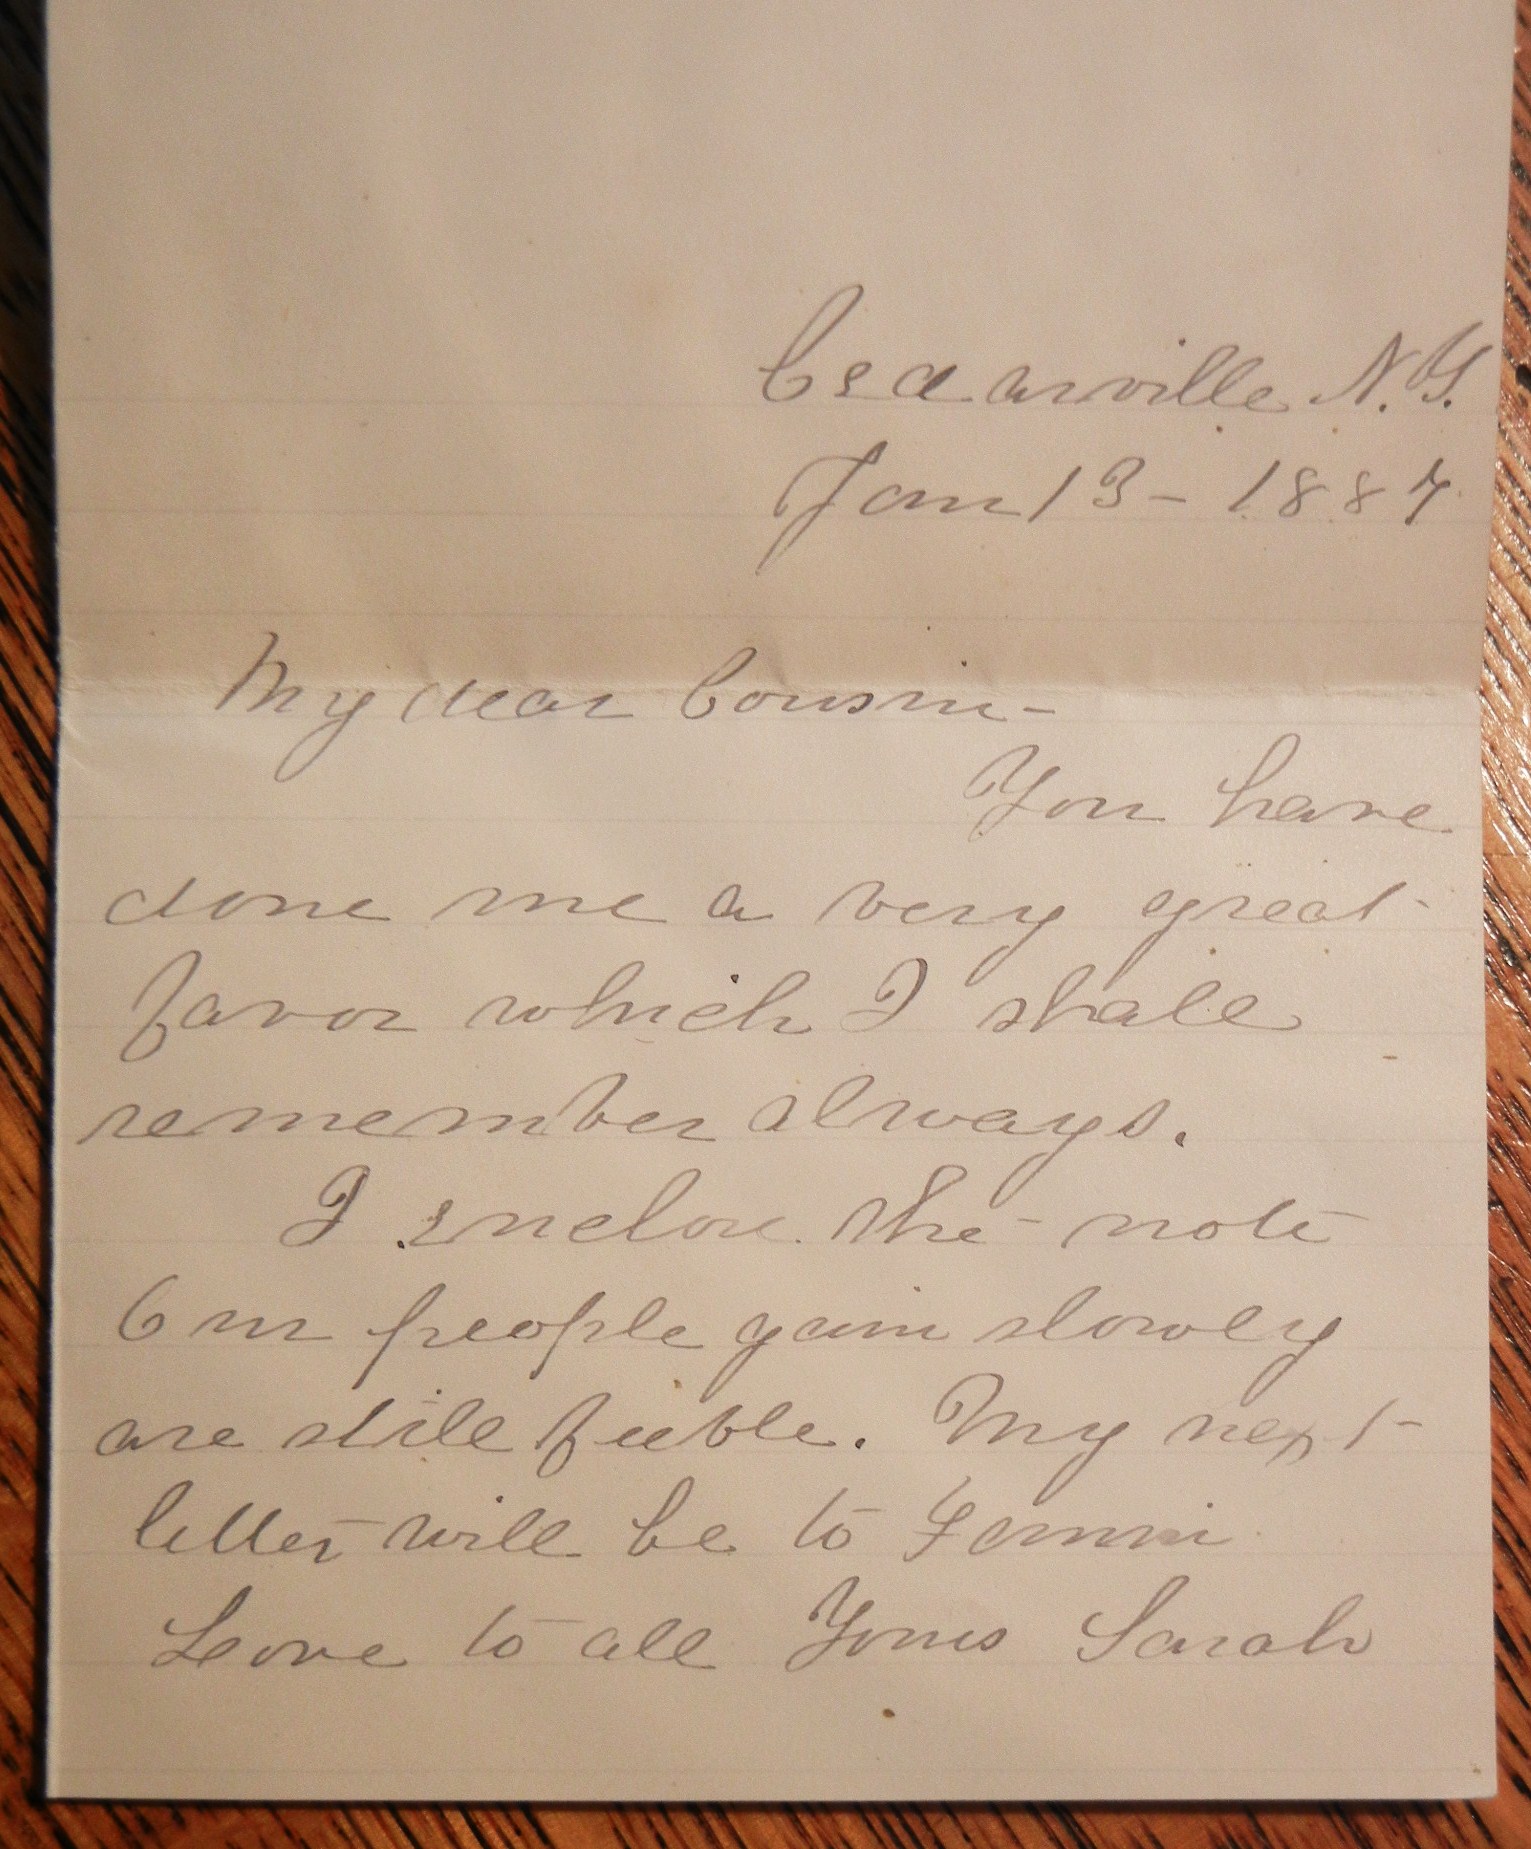 Cedarville N.Y.
Jan 13 - 1887
My dear Cousin -
You have
done me a very great
favor which I shall
remember always.
I enclose the note
Our people gain slowly
are still feeble. My next
letter will be to
Love to all Yours Sarah